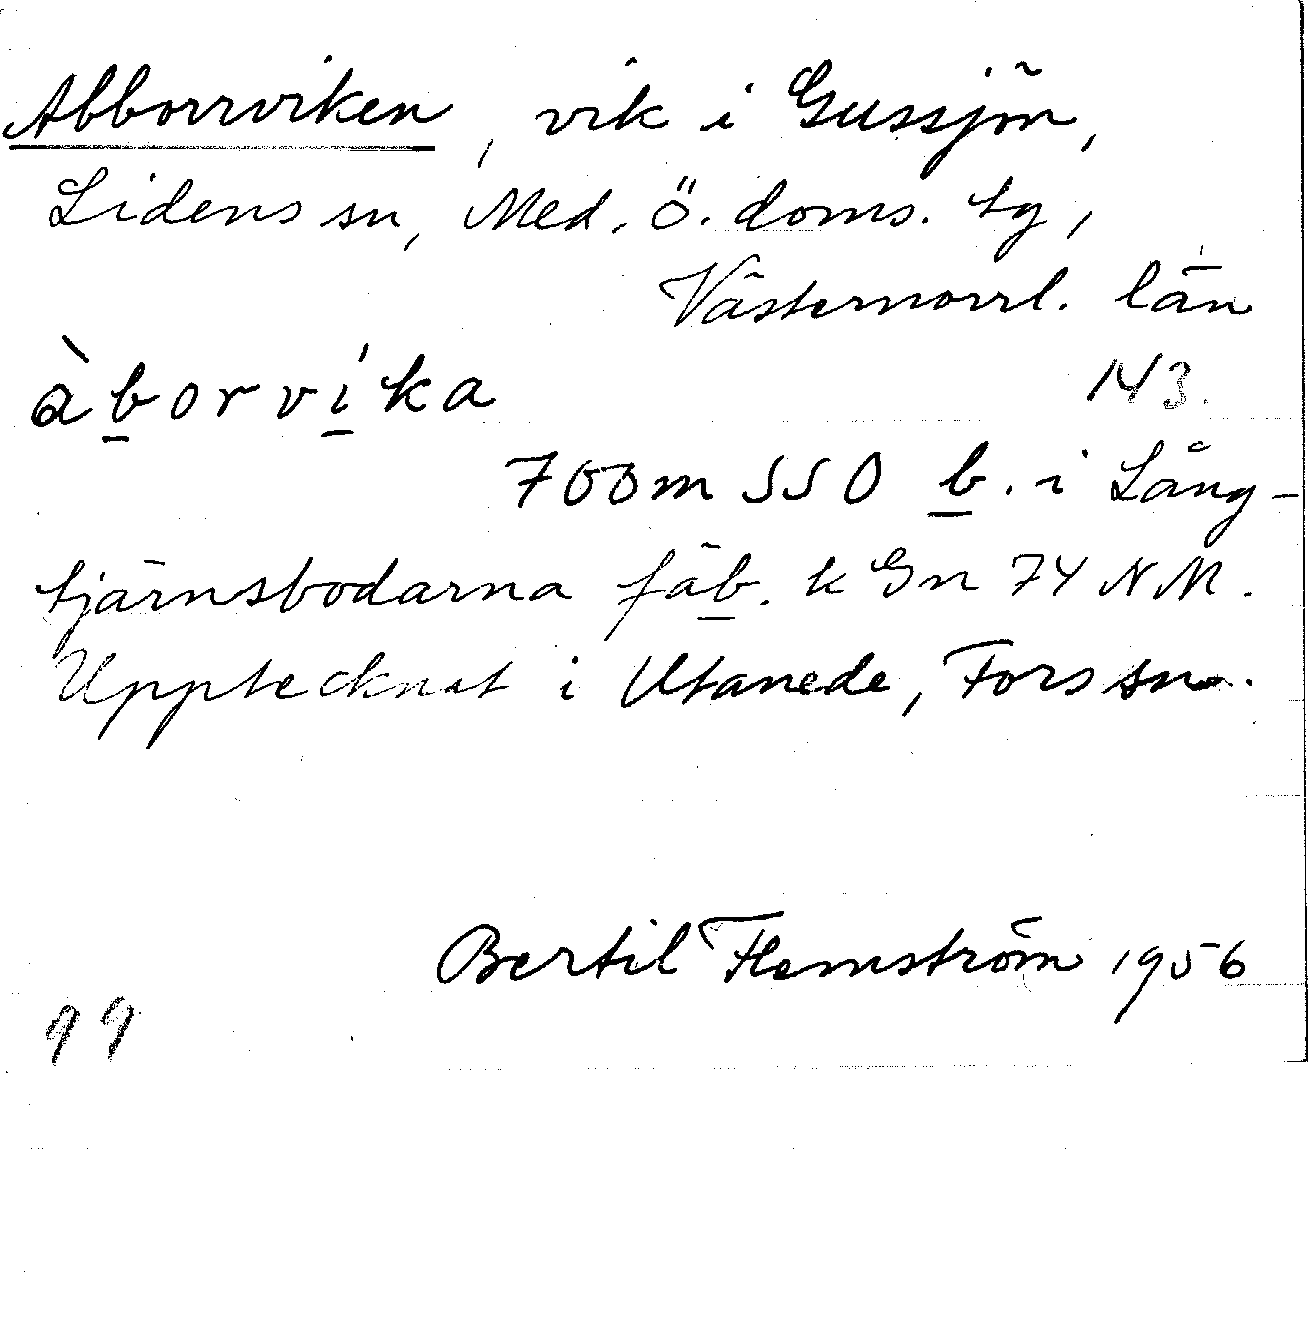 Abborrviken, vik i Gussjön,
Lidens sn, Med. ö. doms. tg,
Västernorrl. län
àborvíka
143.
700m SSO b. i Lång-
tjärnsbodarna fäb. k Gn 74 NM.
Upptecknat i Utanede, Fors sn.
Bertil Flemström 1956
99